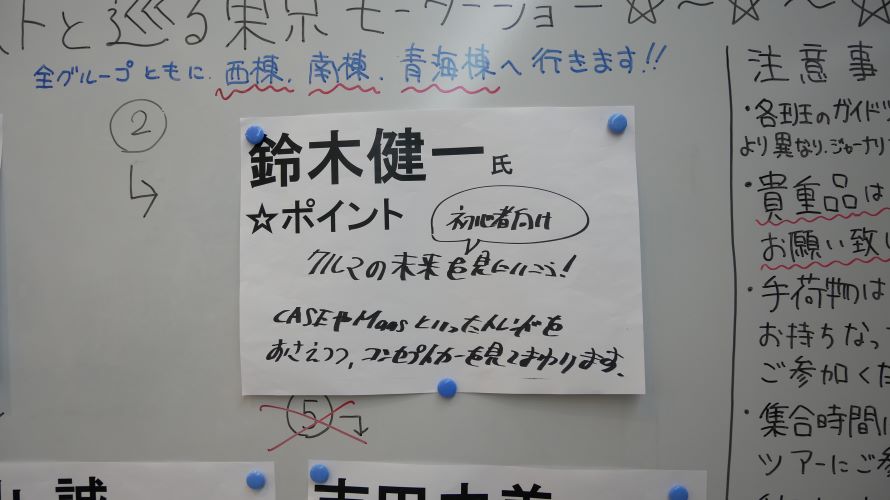 ストと巡る東京モーターショー☆～☆～☆
全グループともに、西棟、南棟、青海棟へ行きます!!
②
鈴木健一氏
☆ポイント
初心者向け
クルマの未来を見にいこう!
CASEやMaasといったトレンドを
おさえつつ、コンセプトカーを見てまわります。
⑤
誠
吉田由美
注意事
・各班のガイドツ
より異なり、ジャーナリ
・貴重品は
お願い致し
・手荷物は
お持ちなっ
ご参加くだ
・集合時間に
ツアーにご参